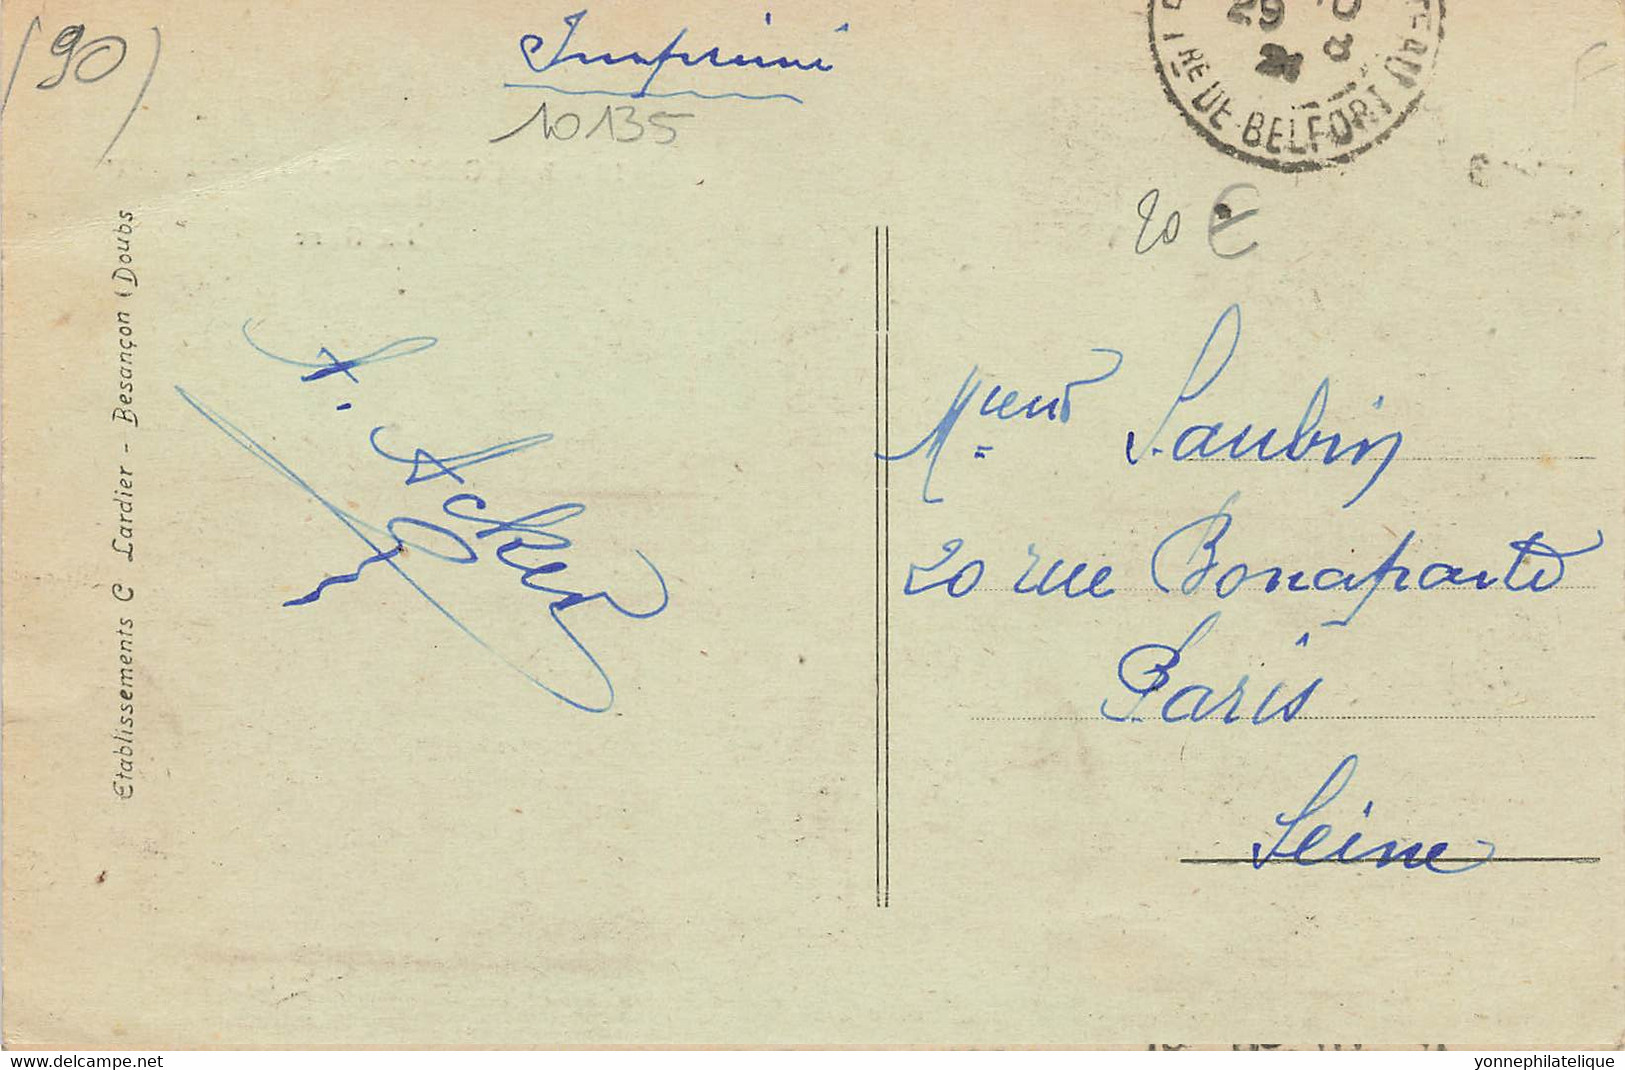 (90)
Imprimé
10135
29
TRE DE BELFORT
20 €
Etablissements C Lardier - Besançon (Doubs
Mieur Saubin
20 rue Bonaparte
Paris
Seine
A. Acker
delcampe.net
yonnephilatelique